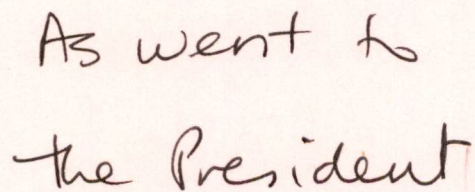 As went to
the President